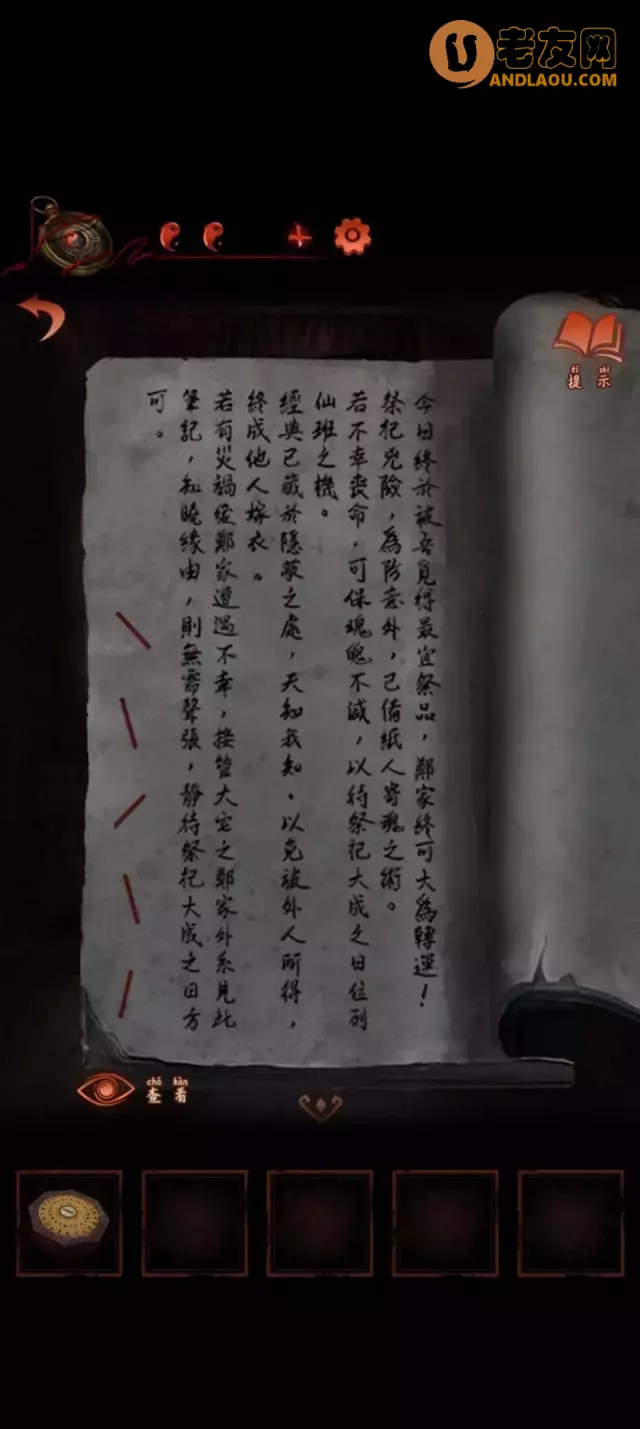 老友网
ANDLAOU.COM
tí shì
提示
今日終於被吾覓得最宜祭品，鄭家終可大為轉運！
祭祀兇險，為防意外，已備紙人寄魂之術。
若不幸喪命，可保魂魄不滅，以待祭祀大成之日位列
仙班之機。
經典已藏於隱蔽之處，天知我知，以免被外人所得，
終成他人嫁衣。
若有災禍從鄭家遭遇不幸，接管大宅之鄭家外系見此
筆記，知曉緣由，則無需聲張，靜待祭祀大成之日方
可。
chá kàn
查看